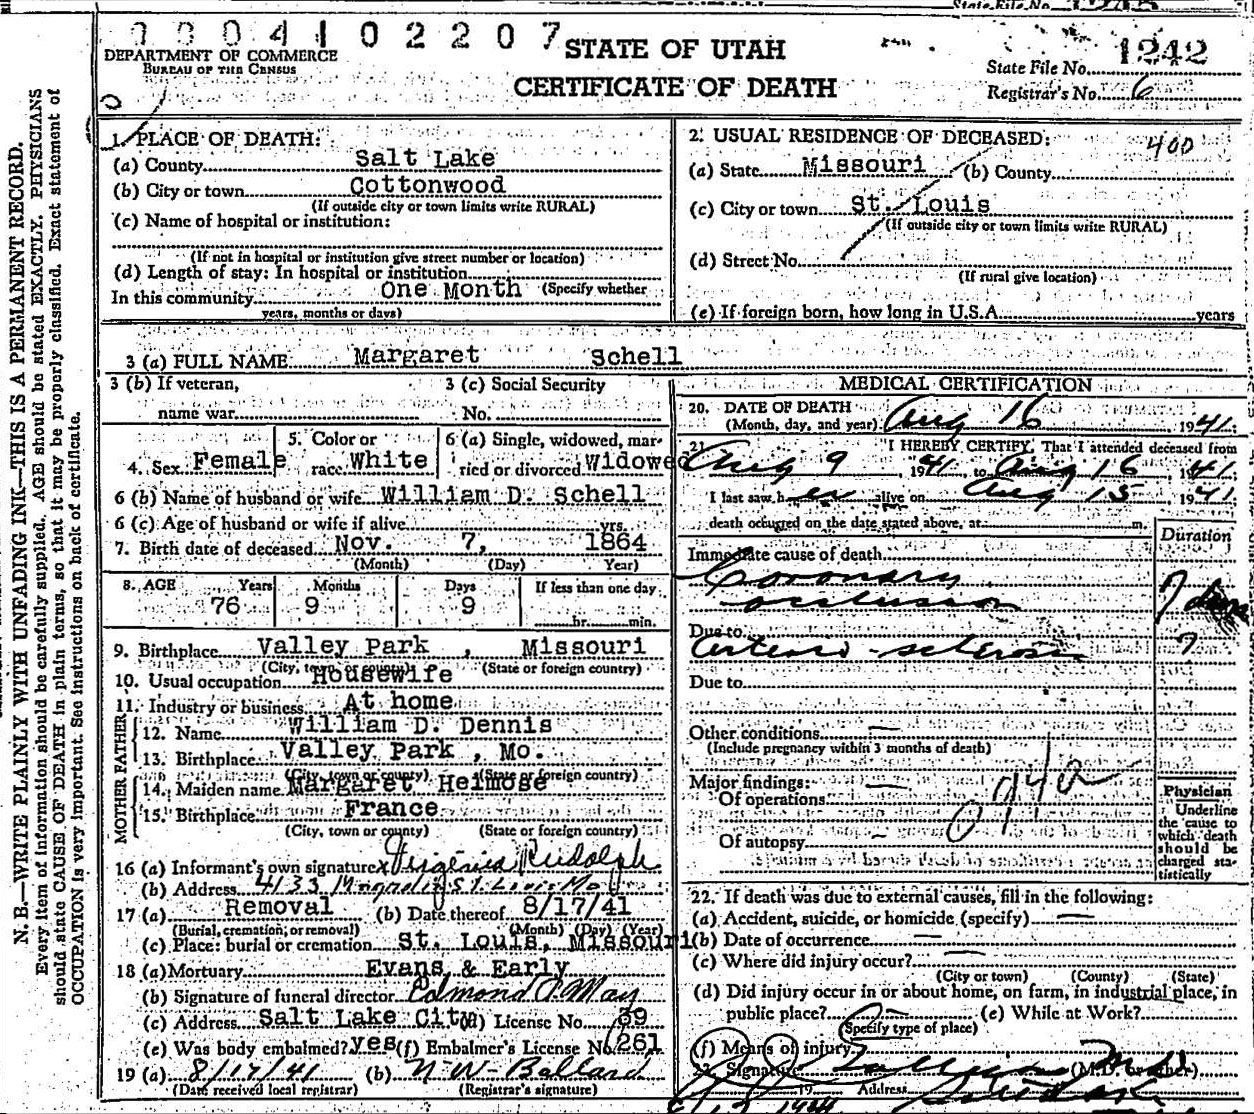 0004102207
STATE OF UTAH
CERTIFICATE OF DEATH
DEPARTMENT OF COMMERCE
BUREAU OF THE CENSUS
State File No. 1242
Registrar's No. 6
N. B.—WRITE PLAINLY WITH UNFADING INK—THIS IS A PERMANENT RECORD.
Every item of information should be carefully supplied. AGE should be stated EXACTLY. PHYSICIANS
should state CAUSE OF DEATH in plain terms, so that it may be properly classified. Exact statement of
OCCUPATION is very important. See instructions on back of certificate.
1. PLACE OF DEATH:
(a) County Salt Lake
(b) City or town Cottonwood
(If outside city or town limits write RURAL)
(c) Name of hospital or institution:
(If not in hospital or institution give street number or location)
(d) Length of stay: In hospital or institution
In this community One Month (Specify whether
years, months or days)
2. USUAL RESIDENCE OF DECEASED: 400
(a) State Missouri (b) County
(c) City or town St. Louis
(If outside city or town limits write RURAL)
(d) Street No.
(If rural give location)
(e) If foreign born, how long in U.S.A. years
3 (a) FULL NAME Margaret Schell
3 (b) If veteran, name war
3 (c) Social Security No.
4. Sex Female
5. Color or race White
6 (a) Single, widowed, married or divorced Widowed
6 (b) Name of husband or wife William D. Schell
6 (c) Age of husband or wife if alive yrs.
7. Birth date of deceased Nov. 7, 1864
(Month) (Day) Year)
8. AGE Years Months Days If less than one day
76 9 9 hr. min.
9. Birthplace Valley Park, Missouri
(City, town or county) (State or foreign country)
10. Usual occupation Housewife
11. Industry or business At home
FATHER
12. Name William D. Dennis
13. Birthplace Valley Park, Mo.
(City, town or county) (State or foreign country)
MOTHER
14. Maiden name Margaret Heimose
15. Birthplace France
(City, town or county) (State or foreign country)
16 (a) Informant's own signature x Virginia Rudolph
(b) Address 4133 St. Louis Mo
17 (a) Removal (b) Date thereof 8/17/41
(Burial, cremation, or removal) (Month) (Day) (Year)
(c) Place: burial or cremation St. Louis, Missouri
18 (a) Mortuary Evans & Early
(b) Signature of funeral director Edmond P. May
(c) Address Salt Lake City (d) License No. 39
(e) Was body embalmed? yes (f) Embalmer's License No. 261
19 (a) 8/17/41 (b) N W Ballard
(Date received local registrar) (Registrar's signature)
MEDICAL CERTIFICATION
20. DATE OF DEATH
(Month, day, and year) Aug 16 1941.
21. I HEREBY CERTIFY, That I attended deceased from
Aug 9 1941 to Aug 16 1941.
I last saw her alive on Aug 15 1941.
death occurred on the date stated above, at m.
Duration
Immediate cause of death
Coronary
occlusion 7 days
Due to
Arterio-sclerosis ?
Due to
Other conditions —
(Include pregnancy within 3 months of death)
Major findings: —
Of operations
094a
Of autopsy —
Physician
Underline
the cause to
which death
should be
charged sta-
tistically
22. If death was due to external causes, fill in the following:
(a) Accident, suicide, or homicide (specify) —
(b) Date of occurrence —
(c) Where did injury occur? —
(City or town) (County) (State)
(d) Did injury occur in or about home, on farm, in industrial place, in
public place? — (e) While at Work?
(Specify type of place)
(f) Means of injury
23. Signature (M.D. or other)
19 Address